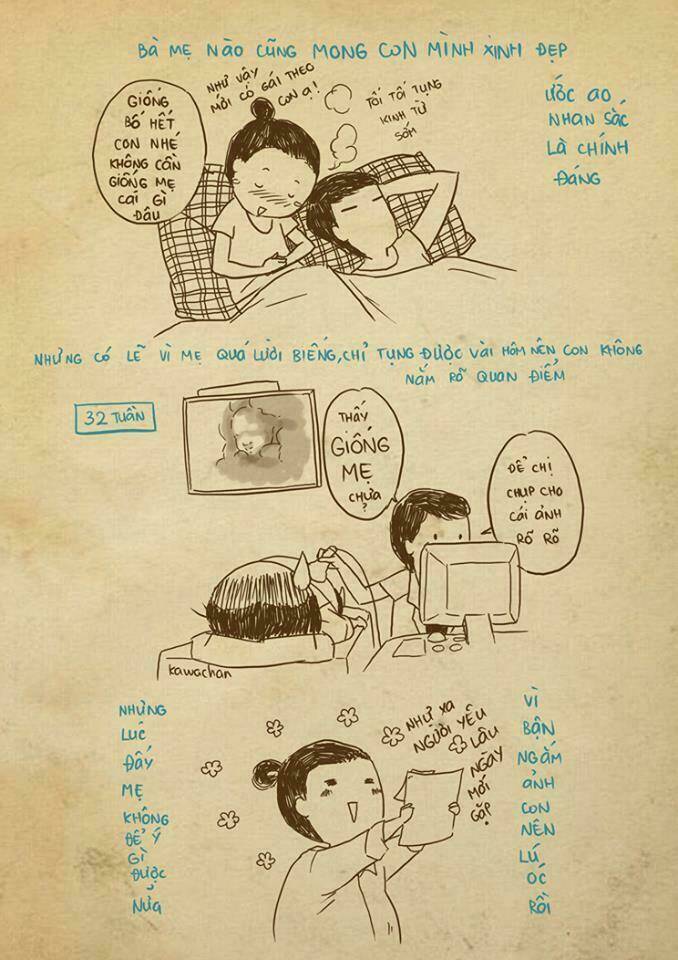 BÀ MẸ NÀO CŨNG MONG CON MÌNH XINH ĐẸP
GIỐNG
BỐ HẾT
CON NHÉ
KHÔNG CẦN
GIỐNG MẸ
CÁI GÌ
ĐÂU
NHƯ VẬY
MỚI CÓ GÁI THEO
CON Ạ!
TỐI TỐI TỤNG
KINH TỪ
SỚM
ƯỚC AO
NHAN SẮC
LÀ CHÍNH
ĐÁNG
NHƯNG CÓ LẼ VÌ MẸ QUÁ LƯỜI BIẾNG, CHỈ TỤNG ĐƯỢC VÀI HÔM NÊN CON KHÔNG
NẮM RÕ QUAN ĐIỂM
32 TUẦN
THẤY
GIỐNG
MẸ
CHƯA
ĐỂ CHỊ
CHỤP CHO
CÁI ẢNH
RÕ RÕ
kawachan
NHƯNG
LÚC
ĐẤY
MẸ
KHÔNG
ĐỂ Ý
GÌ
ĐƯỢC
NỮA
NHƯ XA
NGƯỜI YÊU
LÂU
NGÀY
MỚI
GẶP
VÌ
BẬN
NGẮM
ẢNH
CON
NÊN
LÚ
ÓC
RỒI